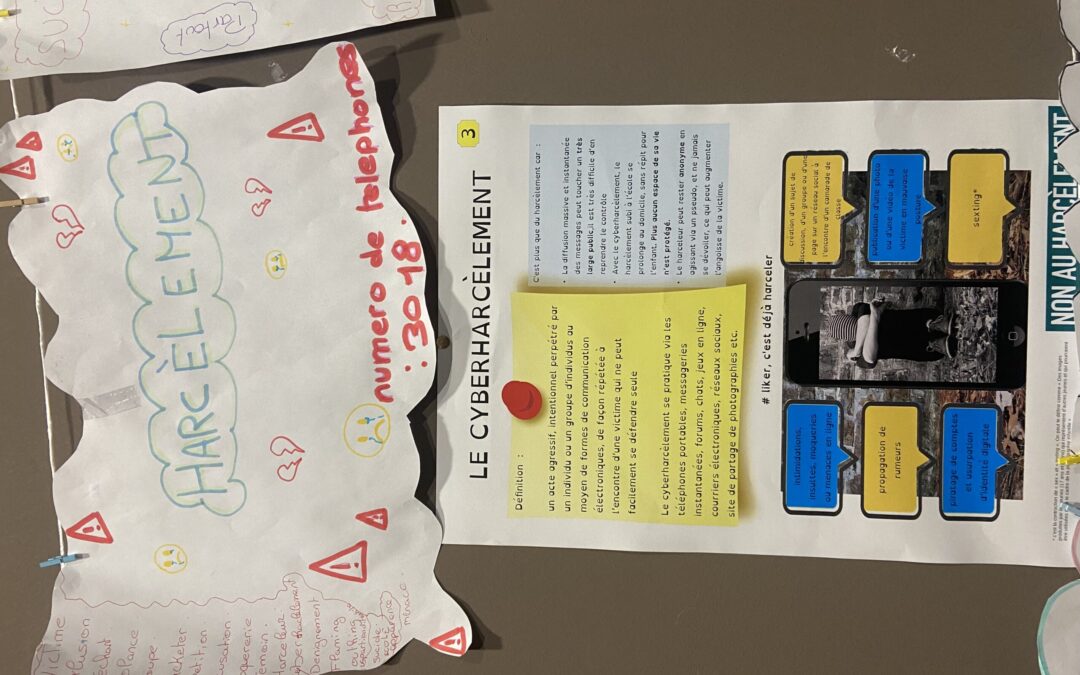 Partout
HARCÈLEMENT
numero de telephones
: 3018.
VICTIME
Dénigrement
Flaming
outing
suicide
menace
3
LE CYBERHARCÈLEMENT
Définition :
un acte agressif, intentionnel perpétré par
un individu ou un groupe d'individus au
moyen de formes de communication
électroniques, de façon répétée à
l'encontre d'une victime qui ne peut
facilement se défendre seule
Le cyberharcèlement se pratique via les
téléphones portables, messageries
instantanées, forums, chats, jeux en ligne,
courriers électroniques, réseaux sociaux,
site de partage de photographies etc.
C'est plus que du harcèlement car :
• La diffusion massive et instantanée
des messages peut toucher un très
large public,il est très difficile d'en
reprendre le contrôle
• Avec le cyberharcèlement, le
harcèlement subi à l'école se
prolonge au domicile, sans répit pour
l'enfant. Plus aucun espace de sa vie
n'est protégé.
• Le harceleur peut rester anonyme en
agissant via un pseudo, et ne jamais
se dévoiler, ce qui peut augmenter
l'angoisse de la victime.
# liker, c'est déjà harceler
intimidations,
insultes, moqueries
ou menaces en ligne
propagation de
rumeurs
piratage de comptes
et usurpation
d'identité digitale
création d'un sujet de
discussion, d'un groupe ou d'une
page sur un réseau social à
l'encontre d'un camarade de
classe
publication d'une photo
ou d'une vidéo de la
victime en mauvaise
posture
sexting*
NON AU HARCÈLEMENT